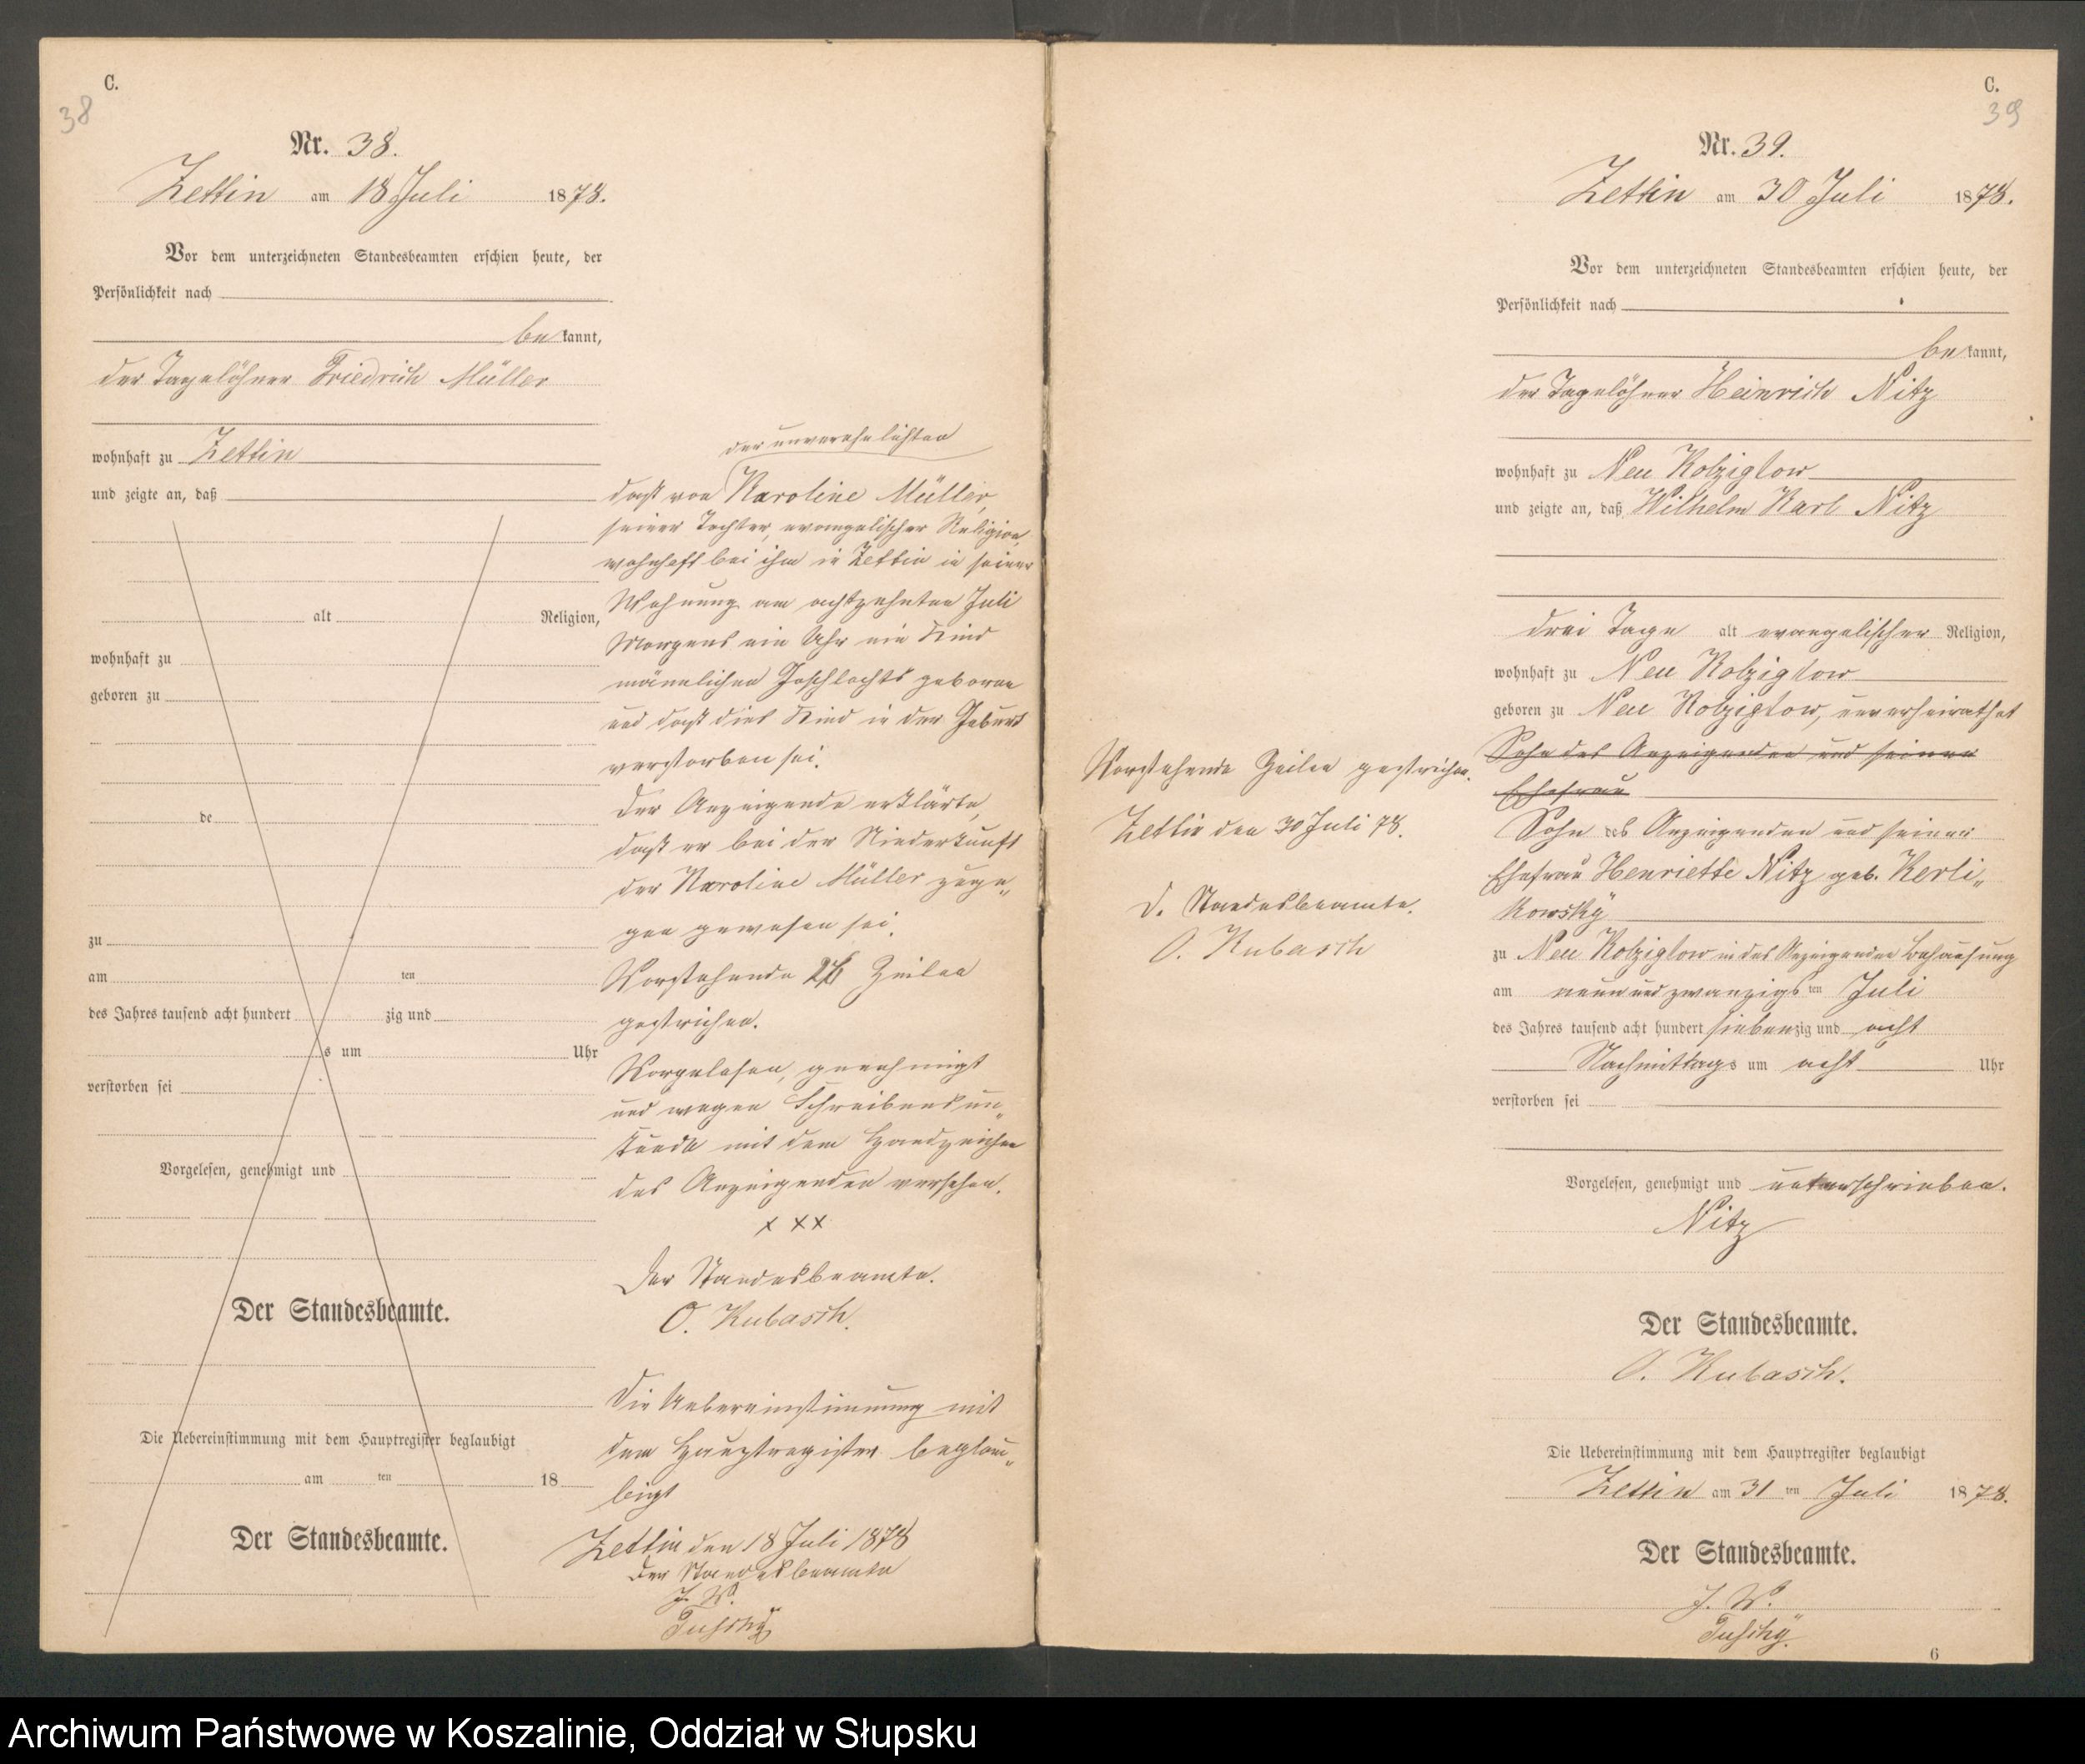 C.
38
Nr. 38.
Zettin am 18 Juli 1878.
Vor dem unterzeichneten Standesbeamten erschien heute, der
Persönlichkeit nach
bekannt,
der Tagelöhner Friedrich Müller
wohnhaft zu Zettin
und zeigte an, daß
alt Religion,
wohnhaft zu
geboren zu
de
zu
am ten
des Jahres tausend acht hundert zig und
s um Uhr
verstorben sei
Vorgelesen, genehmigt und
Der Standesbeamte.
Die Uebereinstimmung mit dem Hauptregister beglaubigt
am ten 18
Der Standesbeamte.
der unverehelichten
daß von Karoline Müller,
seiner Tochter, evangelischer Religion,
wohnhaft bei ihm in Zettin in seiner
Wohnung am achtzehnten Juli
Morgens ein Uhr ein Kind
männlichen Geschlechts geboren
und daß dies Kind in der Geburt
verstorben sei.
Der Anzeigende erklärte,
daß er bei der Niederkunft
der Karoline Müller zuge„
gen gewesen sei.
Vorstehende Zeilen
gestrichen.
Vorgelesen, genehmigt
und wegen Schreibensun„
kunde mit dem Handzeichen
des Anzeigenden versehen.
x x x
Der Standesbeamte.
O. Kubasch.
Die Uebereinstimmung mit
dem Hauptregister beglau„
bigt
Zettin den 18 Juli 1878
Der Standesbeamte
J. V.
Tuschy
C.
39
Nr. 39.
Zettin am 30 Juli 1878.
Vor dem unterzeichneten Standesbeamten erschien heute, der
Persönlichkeit nach
bekannt,
der Tagelöhner Heinrich Nitz
wohnhaft zu Neu Kolziglow
und zeigte an, daß Wilhelm Karl Nitz
drei Tage alt evangelischer Religion,
wohnhaft zu Neu Kolziglow
geboren zu Neu Kolziglow, unverheirathet
Sohn des Anzeigenden und seiner
Ehefrau
Sohn des Anzeigenden und seiner
Ehefrau Henriette Nitz geb. Kerli„
kowsky
zu Neu Kolziglow in des Anzeigenden Behausung
am neun und zwanzigsten Juli
des Jahres tausend acht hundert siebenzig und acht
Nachmittags um acht Uhr
verstorben sei
Vorgelesen, genehmigt und unterschrieben.
Nitz
Der Standesbeamte.
O. Kubasch.
Die Uebereinstimmung mit dem Hauptregister beglaubigt
Zettin am 31 ten Juli 1878.
Der Standesbeamte.
J. V.
Tuschy.
6
Vorstehende Zeilen gestrichen.
Zettin den 30 Juli 78.
D. Standesbeamte.
O. Kubasch
Archiwum Państwowe w Koszalinie, Oddział w Słupsku